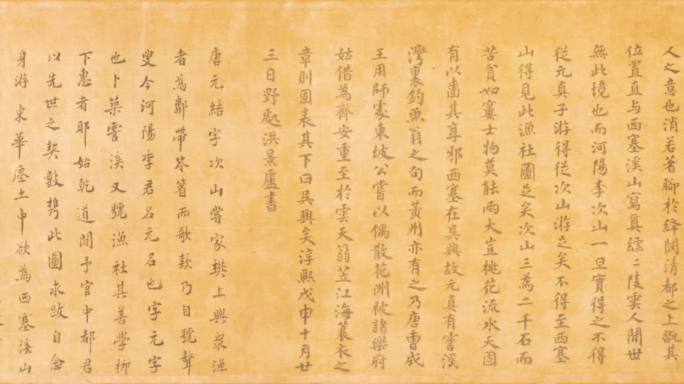 人之意也消若著腳於絳闕清都之上戲其
位置直与西塞溪山寫真綠二陵雲人間世
無此境也而河陽李次山一旦實得之不得
從元真子游得從次山游足矣不得至西塞
山得見此漁社圖足矣次山三為二千石而
苦貧如寠士物莫能兩大豈桃花流水天固
有以嗇其享邪西塞在吳興故元真有霅溪
灣裏釣魚翁之句而黃州亦有之乃唐曹成
王用師處東坡公嘗以偶散花洲被諸樂府
姑借為齊安重至於雲天篛笠江海蓑衣之
章則固表其下曰吳興矣淳熙戊申十月廿
三日野處洪景盧書
唐元結字次山嘗家樊上與眾漁
者為鄰帶笭箵而歌欸乃自號聱
叟今河陽李君名元名也字元字
也卜築霅溪又號漁社其善學柳
下惠者耶始乾道間予官中都君
以先世之契數攜此圖求跋自念
身游東華塵土中欲為西塞溪山